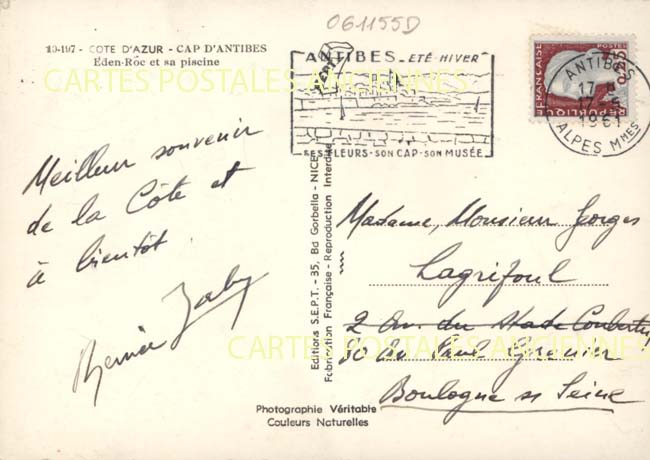 061155D
10-197 - COTE D'AZUR - CAP D'ANTIBES
Eden-Roc et sa piscine
ANTIBES - ETÉ-HIVER
SES FLEURS-SON CAP-SON MUSÉE
POSTES
0,25
REPUBLIQUE FRANÇAISE
ANTIBES
17 H
1961
ALPES Mmes
CARTES POSTALES ANCIENNES
Meilleur souvenir
de la Côte et
à bientôt
Editions S.E.P.T. - 35, Bd Gorbella - NICE
Fabrication Française - Reproduction Interdite
Madame, Monsieur Georges
Lagrifoul
2 Av. du Stade Coubertin
Grenier
Boulogne s/ Seine
CARTES POSTALES ANCIENNES
Photographie Véritable
Couleurs Naturelles